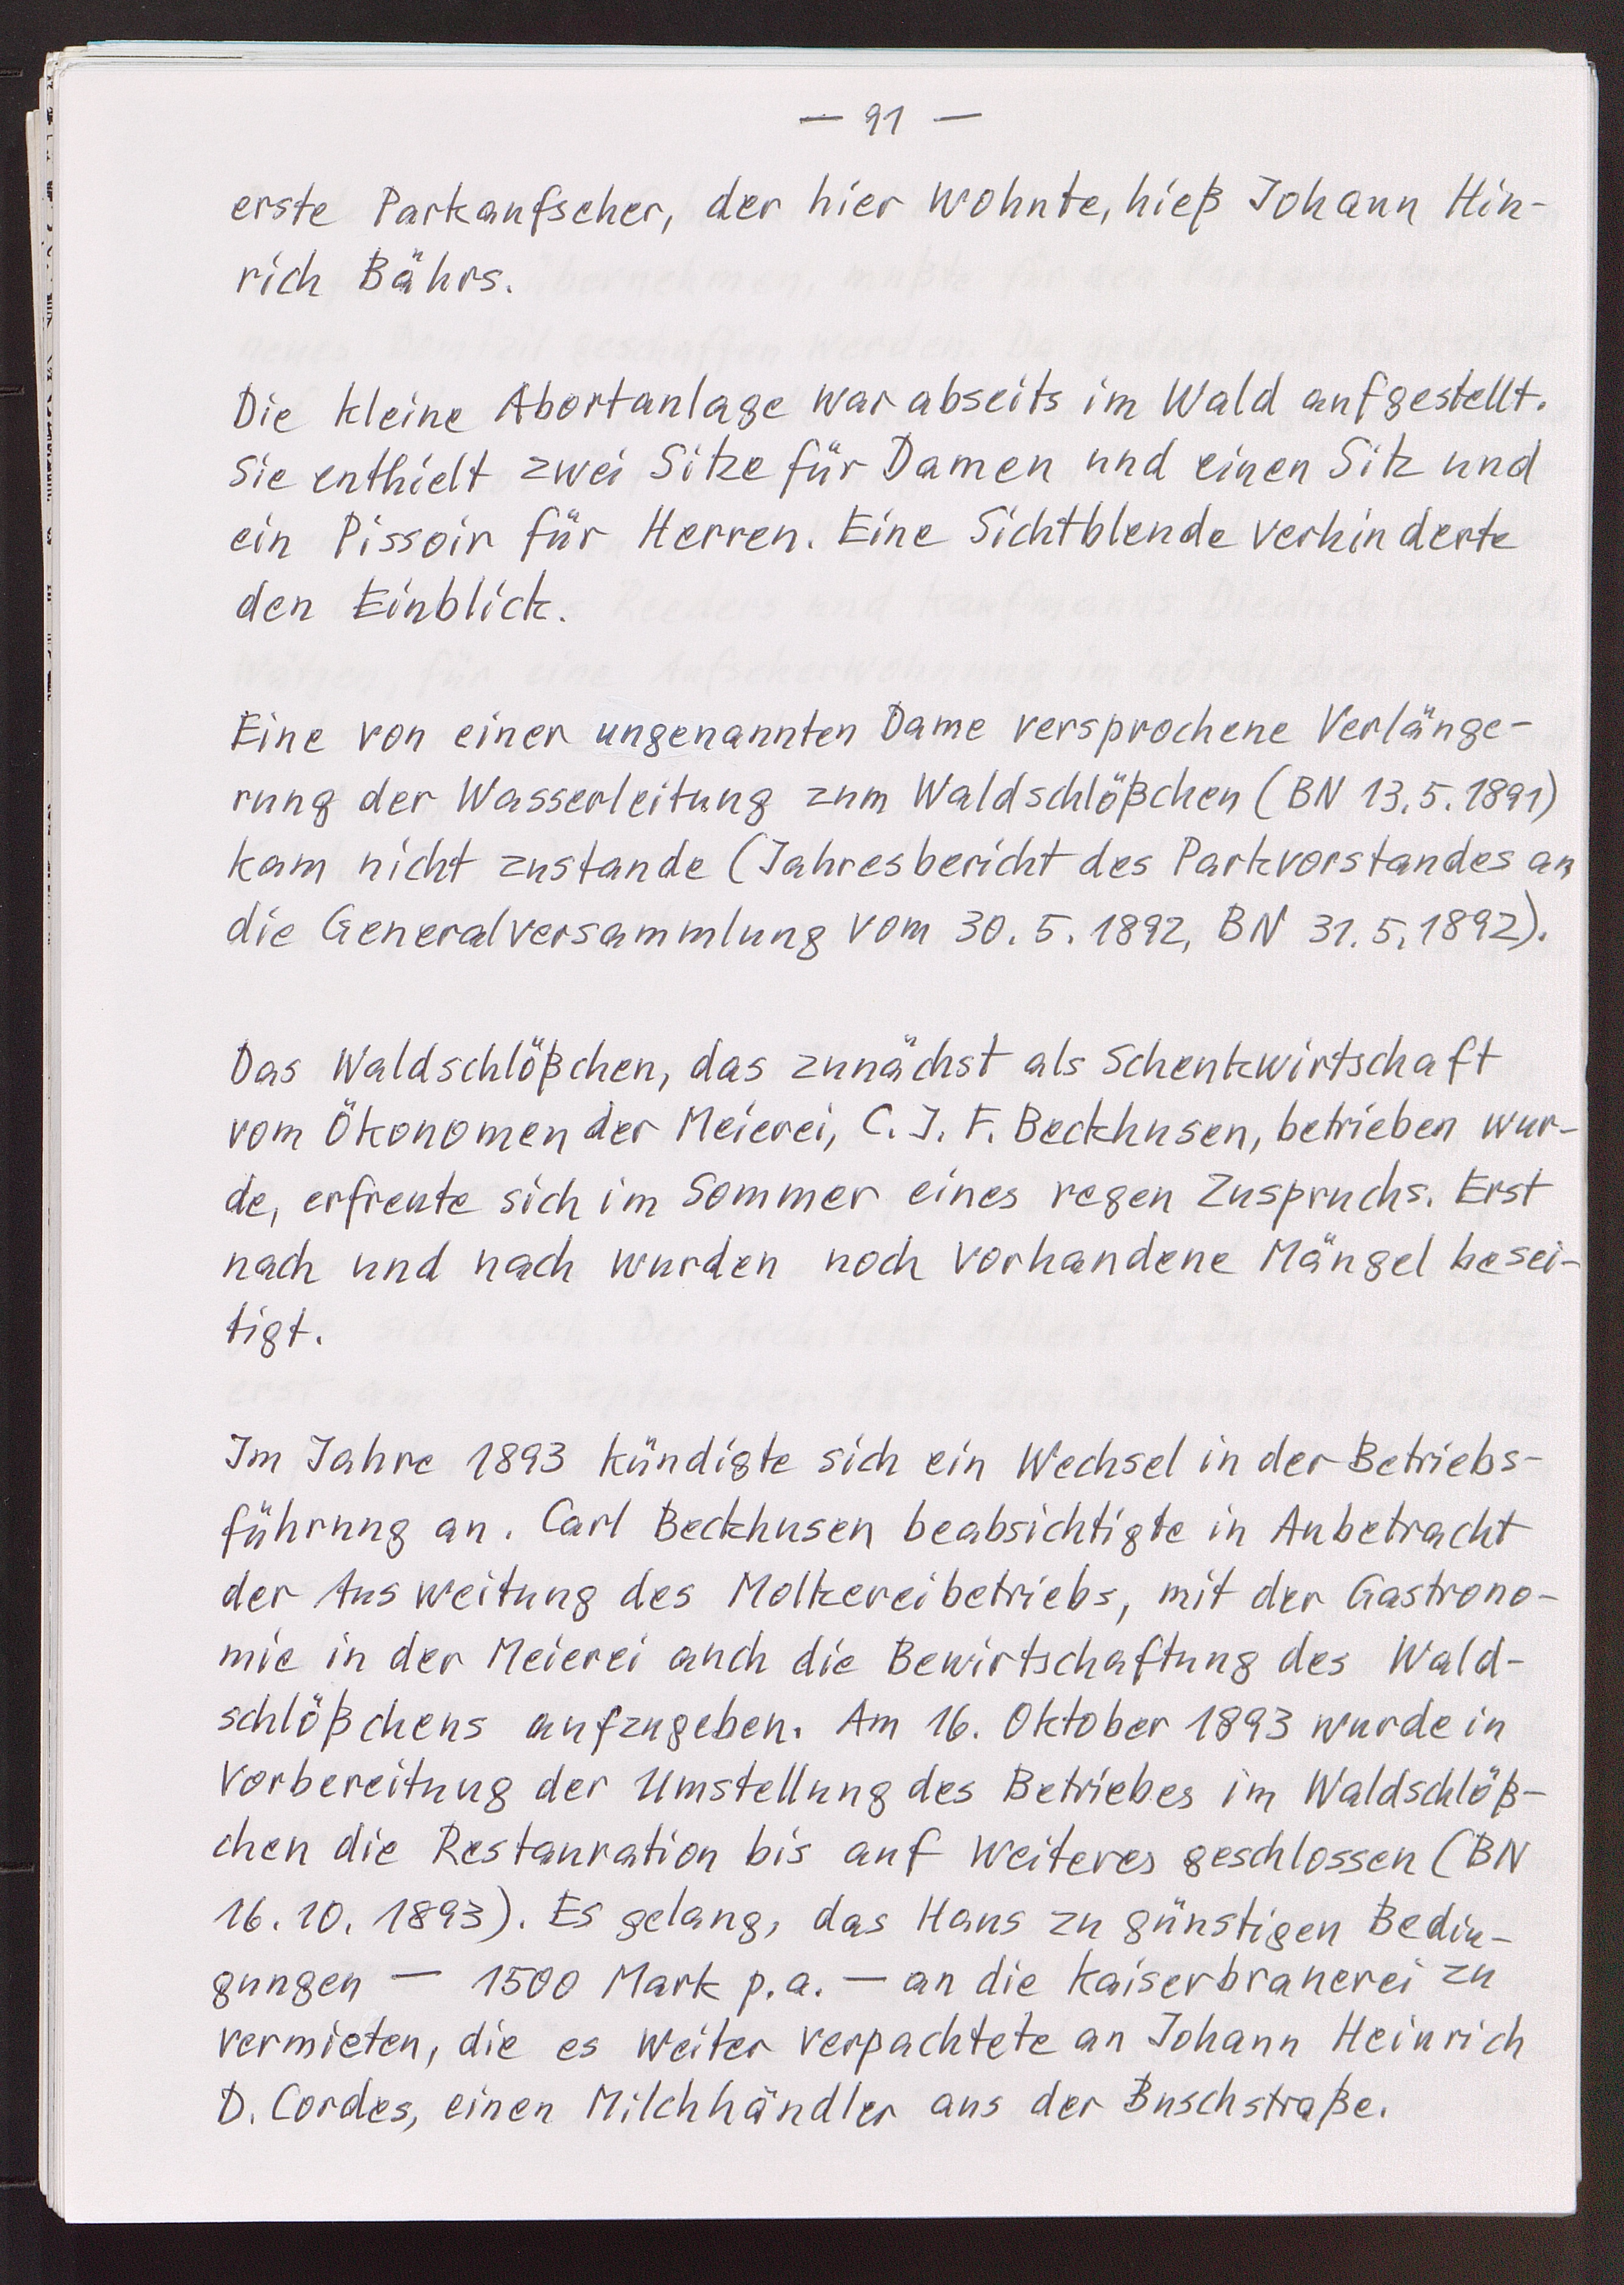 — 91 —
erste Parkaufseher, der hier wohnte, hieß Johann Hin-
rich Bährs.
Die kleine Abortanlage war abseits im Wald aufgestellt.
Sie enthielt zwei Sitze für Damen und einen Sitz und
ein Pissoir für Herren. Eine Sichtblende verhinderte
den Einblick.
Eine von einer ungenannten Dame versprochene Verlänge-
rung der Wasserleitung zum Waldschlößchen (BN 13.5.1891)
kam nicht zustande (Jahresbericht des Parkvorstandes an
die Generalversammlung vom 30.5.1892, BN 31.5.1892).
Das Waldschlößchen, das zunächst als Schenkwirtschaft
vom Ökonomen der Meierei, C. J. F. Beckhusen, betrieben wur-
de, erfreute sich im Sommer eines regen Zuspruchs. Erst
nach und nach wurden noch vorhandene Mängel besei-
tigt.
Im Jahre 1893 kündigte sich ein Wechsel in der Betriebs-
führung an. Carl Beckhusen beabsichtigte in Anbetracht
der Ausweitung des Molkereibetriebs, mit der Gastrono-
mie in der Meierei auch die Bewirtschaftung des Wald-
schlößchens aufzugeben. Am 16. Oktober 1893 wurde in
Vorbereitung der Umstellung des Betriebes im Waldschlöß-
chen die Restauration bis auf Weiteres geschlossen (BN
16.10.1893). Es gelang, das Haus zu günstigen Bedin-
gungen — 1500 Mark p.a. — an die Kaiserbrauerei zu
vermieten, die es weiter verpachtete an Johann Heinrich
D. Cordes, einen Milchhändler aus der Buschstraße.